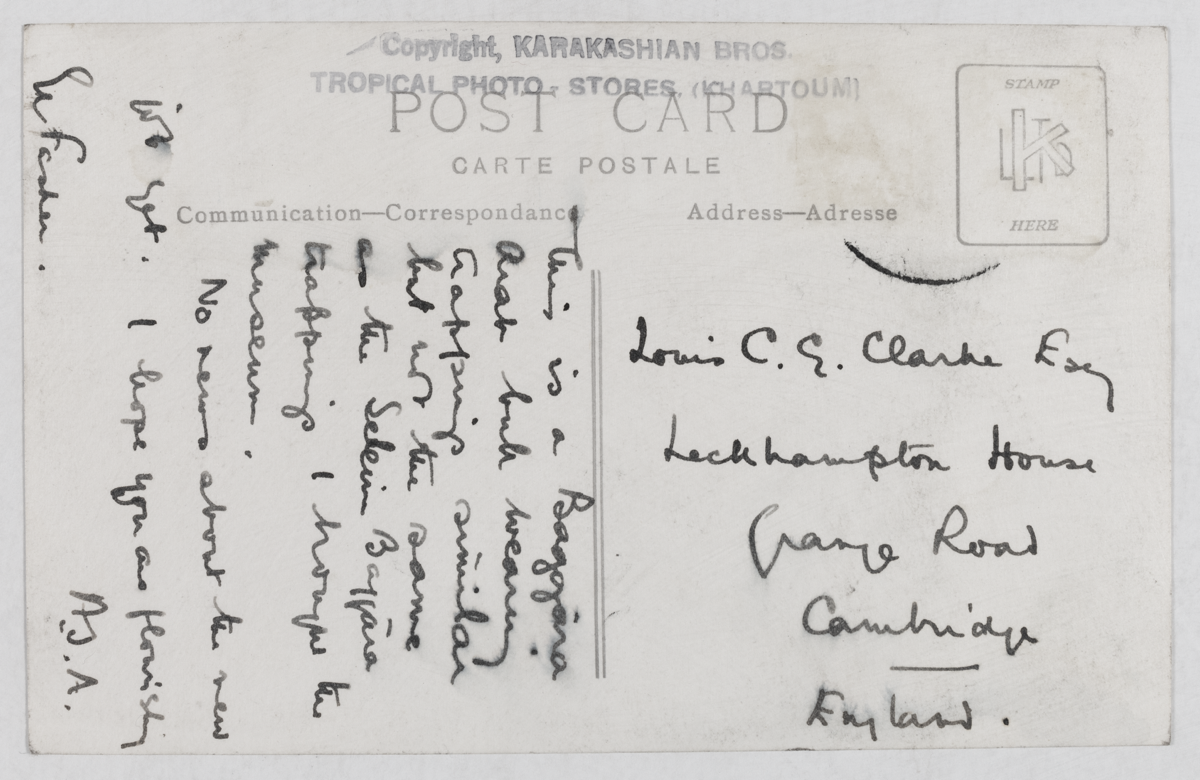 Copyright, KARAKASHIAN BROS.
TROPICAL PHOTO - STORES, (KHARTOUM)
POST CARD
CARTE POSTALE
Communication—Correspondance
Address—Adresse
STAMP
HERE
This is a Baggāra
Arab bull wearing
trappings similar
but not the same
as the Selim Baggāra
trappings I brought the
museum.
No news about the new
job yet. I hope you are flourishing
A.J.A.
El Fasher.
Louis C. G. Clarke Esq
Leckhampton House
Grange Road
Cambridge
England.